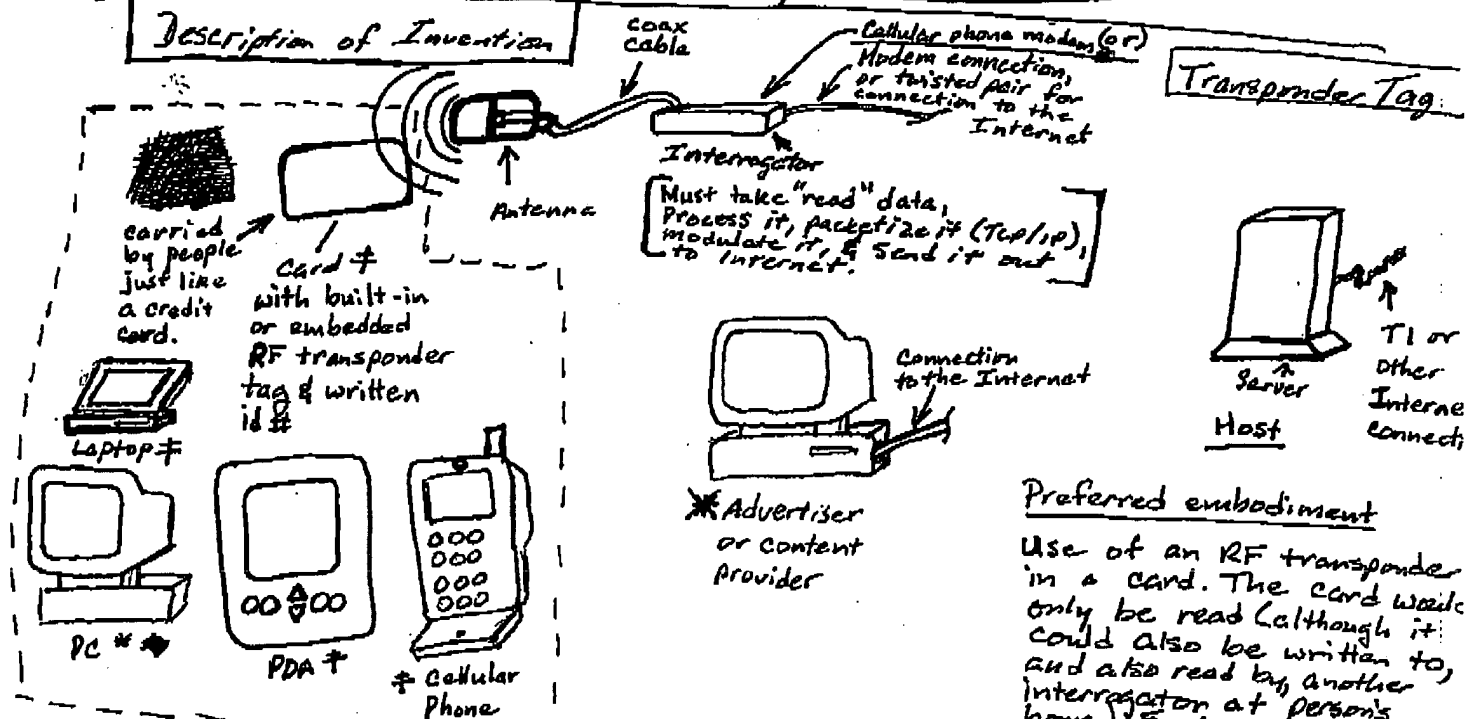 Description of Invention
coax
cable
Cellular phone modem (or)
Modem connection,
or twisted pair for
connection to the
Internet
Transponder Tag:
Interrogator
Antenna
Must take "read" data,
Process it, packetize it (Tcp/ip),
modulate it, & send it out
to Internet.
carried
by people
just like
a credit
card.
Card ‡
with built-in
or embedded
RF transponder
tag & written
id #
Laptop ‡
PC *
PDA ‡
‡ Cellular
Phone
Connection
to the Internet
* Advertiser
or content
provider
Server
Host
T1 or
other
Interne
connecti
Preferred embodiment
Use of an RF transponder
in a card. The card would
only be read (although it
could also be written to,
and also read by, another
interrogator at person's